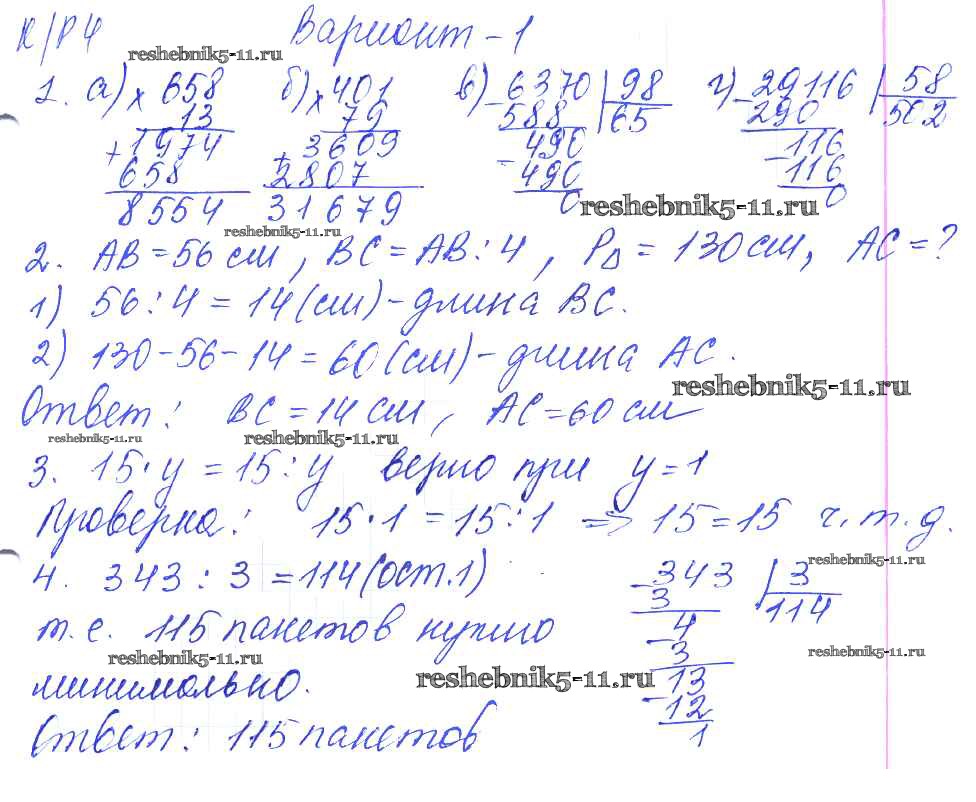 К/Р 4 Вариант-1
reshebnik5-11.ru
1. а) × 658 б) × 401 в) - 6370 | 98 г) - 29116 | 58
13 79 588 65 290 502
+ 1974 + 3609 - 490 - 116
658 2807 490 116
8554 31679 0 0
reshebnik5-11.ru
reshebnik5-11.ru
2. AB = 56 см, BC = AB : 4, P∆ = 130 см, AC = ?
1) 56 : 4 = 14 (см) - длина BC.
2) 130 - 56 - 14 = 60 (см) - длина AC.
reshebnik5-11.ru
Ответ: BC = 14 см, AC = 60 см
reshebnik5-11.ru reshebnik5-11.ru
3. 15 · y = 15 : y верно при y = 1
Проверка: 15 · 1 = 15 : 1 => 15 = 15 ч.т.д.
reshebnik5-11.ru
4. 343 : 3 = 114 (ост. 1) - 343 | 3
3 114
т.е. 115 пакетов нужно - 4
3
reshebnik5-11.ru reshebnik5-11.ru reshebnik5-11.ru
минимально. - 13
12
Ответ: 115 пакетов 1